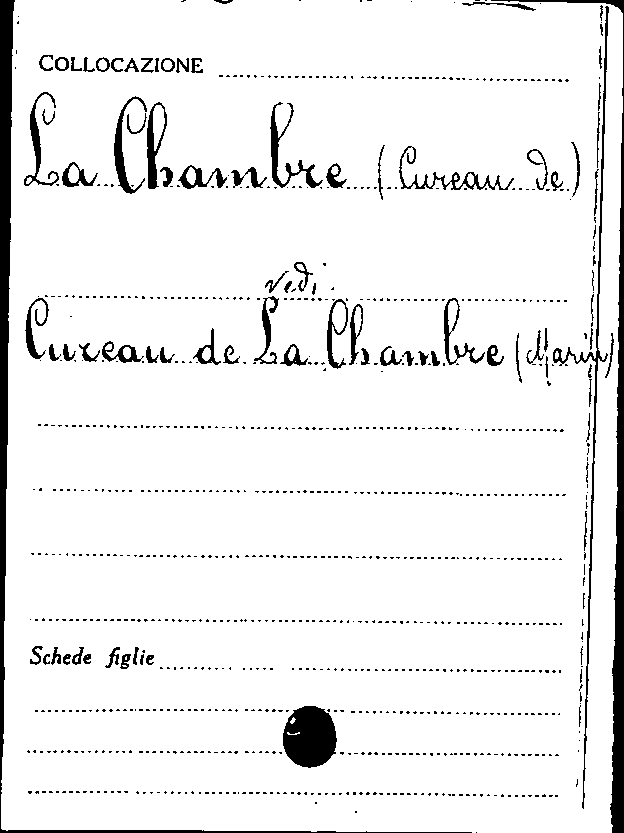 COLLOCAZIONE
La Chambre (Cureau de)
vedi
Cureau de La Chambre (Marin)
Schede figlie